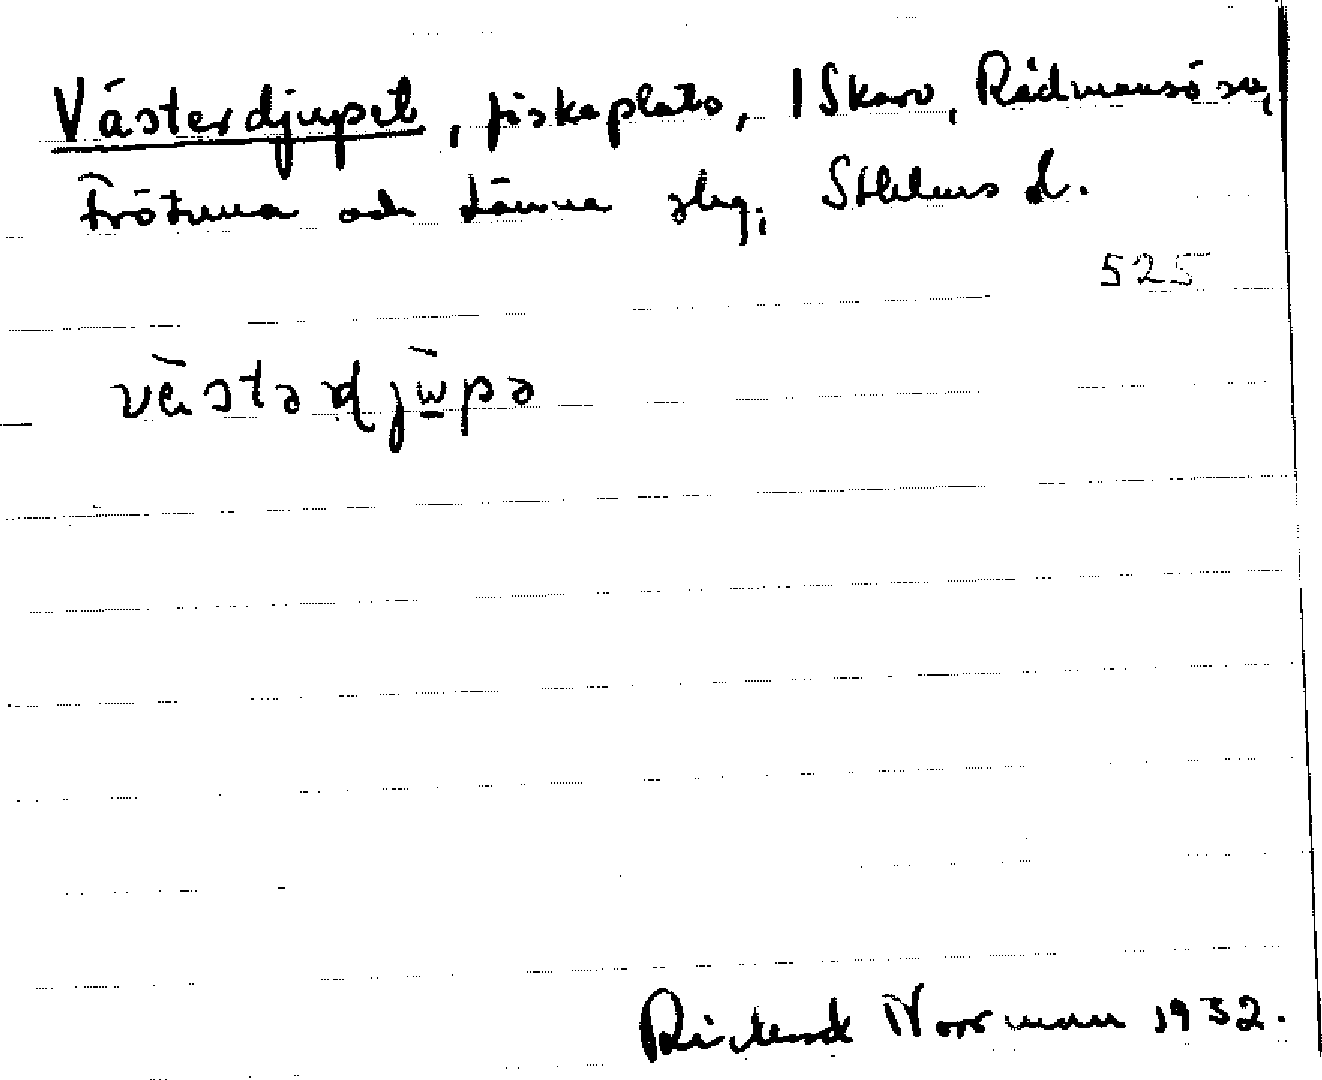 Västerdjupet, fiskeplats, I Skarv, Rådmansö sn,
Frötuna och Länna slg, Sthlms l.
525
vä̀stədjẁpə
Rickard Norrman 1932.